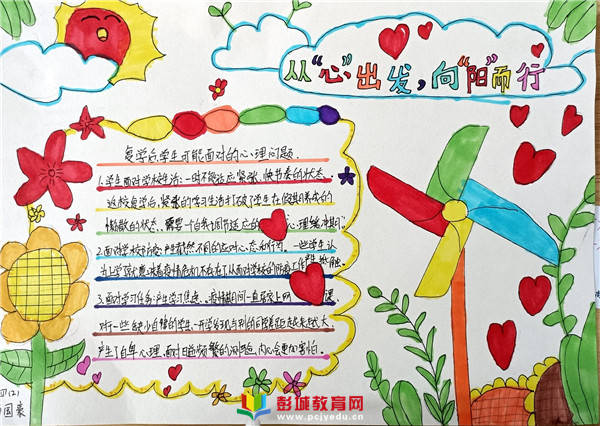 从“心”出发，向“阳”而行
复学后学生可能面对的心理问题.
1.学生面对学校生活：一时不能适应紧张、快节奏的状态.
返校复学后，紧张的学习生活打破了学生在假期养成的
懒散的状态、需要一个自我调节适应的 心理缓冲期。
2.面对学校防疫：产生截然不同的应对心态和行为。一些学生认
为
3.面对学习任务：产生学习焦虑、疫情期间一直在上网 课,
对于一些缺少自律的学生，开学会发现与别的同学差距越来越大,
产生了自卑心理，面对日益频繁的测验，内心会更加害怕。
四(2)
彭城教育网
www.pcjyedu.cn